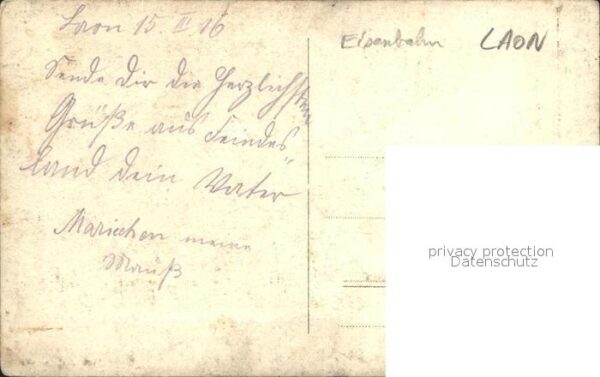 Laon 15 II 16
Sende Dir die Herzlichsten
Grüße aus Feindes
land dein Vater
Mariechen meine
Mauß
Eisenbahn LAON
privacy protection
Datenschutz